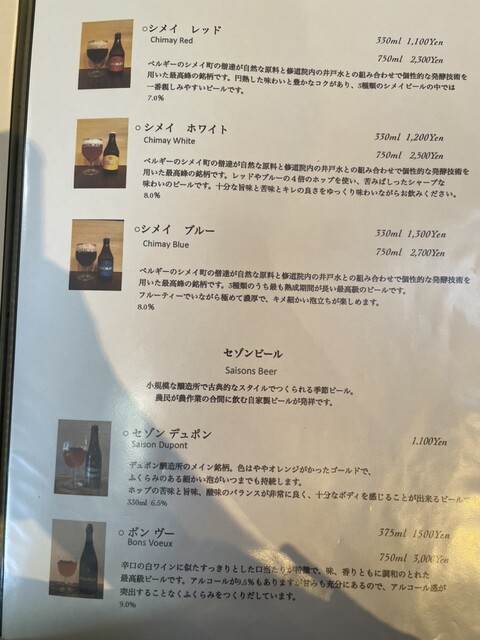 ○シメイ　レッド
Chimay Red
330ml 1,100Yen
750ml 2,300Yen
ベルギーのシメイ町の僧達が自然な原料と修道院内の井戸水との組み合わせで個性的な発酵技術を
用いた最高峰の銘柄です。円熟した味わいと豊かなコクがあり、3種類のシメイビールの中では
一番親しみやすいビールです。
7.0%
○シメイ　ホワイト
Chimay White
330ml 1,200Yen
750ml 2,500Yen
ベルギーのシメイ町の僧達が自然な原料と修道院内の井戸水との組み合わせで個性的な発酵技術を
用いた最高峰の銘柄です。レッドやブルーの４倍のホップを使い、苦みばしったシャープな
味わいのビールです。十分な旨味と苦味とキレの良さをゆっくり味わいながらお飲みください。
8.0%
○シメイ　ブルー
Chimay Blue
330ml 1,300Yen
750ml 2,700Yen
ベルギーのシメイ町の僧達が自然な原料と修道院内の井戸水との組み合わせで個性的な発酵技術を
用いた最高峰の銘柄です。3種類のうち最も熟成期間が長い最高級のビールです。
フルーティーでいながら極めて濃厚で、キメ細かい泡立ちが楽しめます。
8.0%
セゾンビール
Saisons Beer
小規模な醸造所で古典的なスタイルでつくられる季節ビール。
農民が農作業の合間に飲む自家製ビールが発祥です。
○ セゾン デュポン
Saison Dupont
1,100Yen
デュポン醸造所のメイン銘柄。色はややオレンジがかったゴールドで、
ふくらみのある細かい泡がいつまでも持続します。
ホップの苦味と旨味、酸味のバランスが非常に良く、十分なボディを感じることが出来るビールで
330ml 6.5%
○ ボン ヴー
Bons Voeux
375ml 1500Yen
750ml 3,000Yen
辛口の白ワインに似たすっきりとした口当たりが特徴で、味、香りともに調和のとれた
最高級ビールです。アルコールが9.5％もありますが甘みも充分にあるので、アルコール感が
突出することなくふくらみをつくりだしています。
9.0%